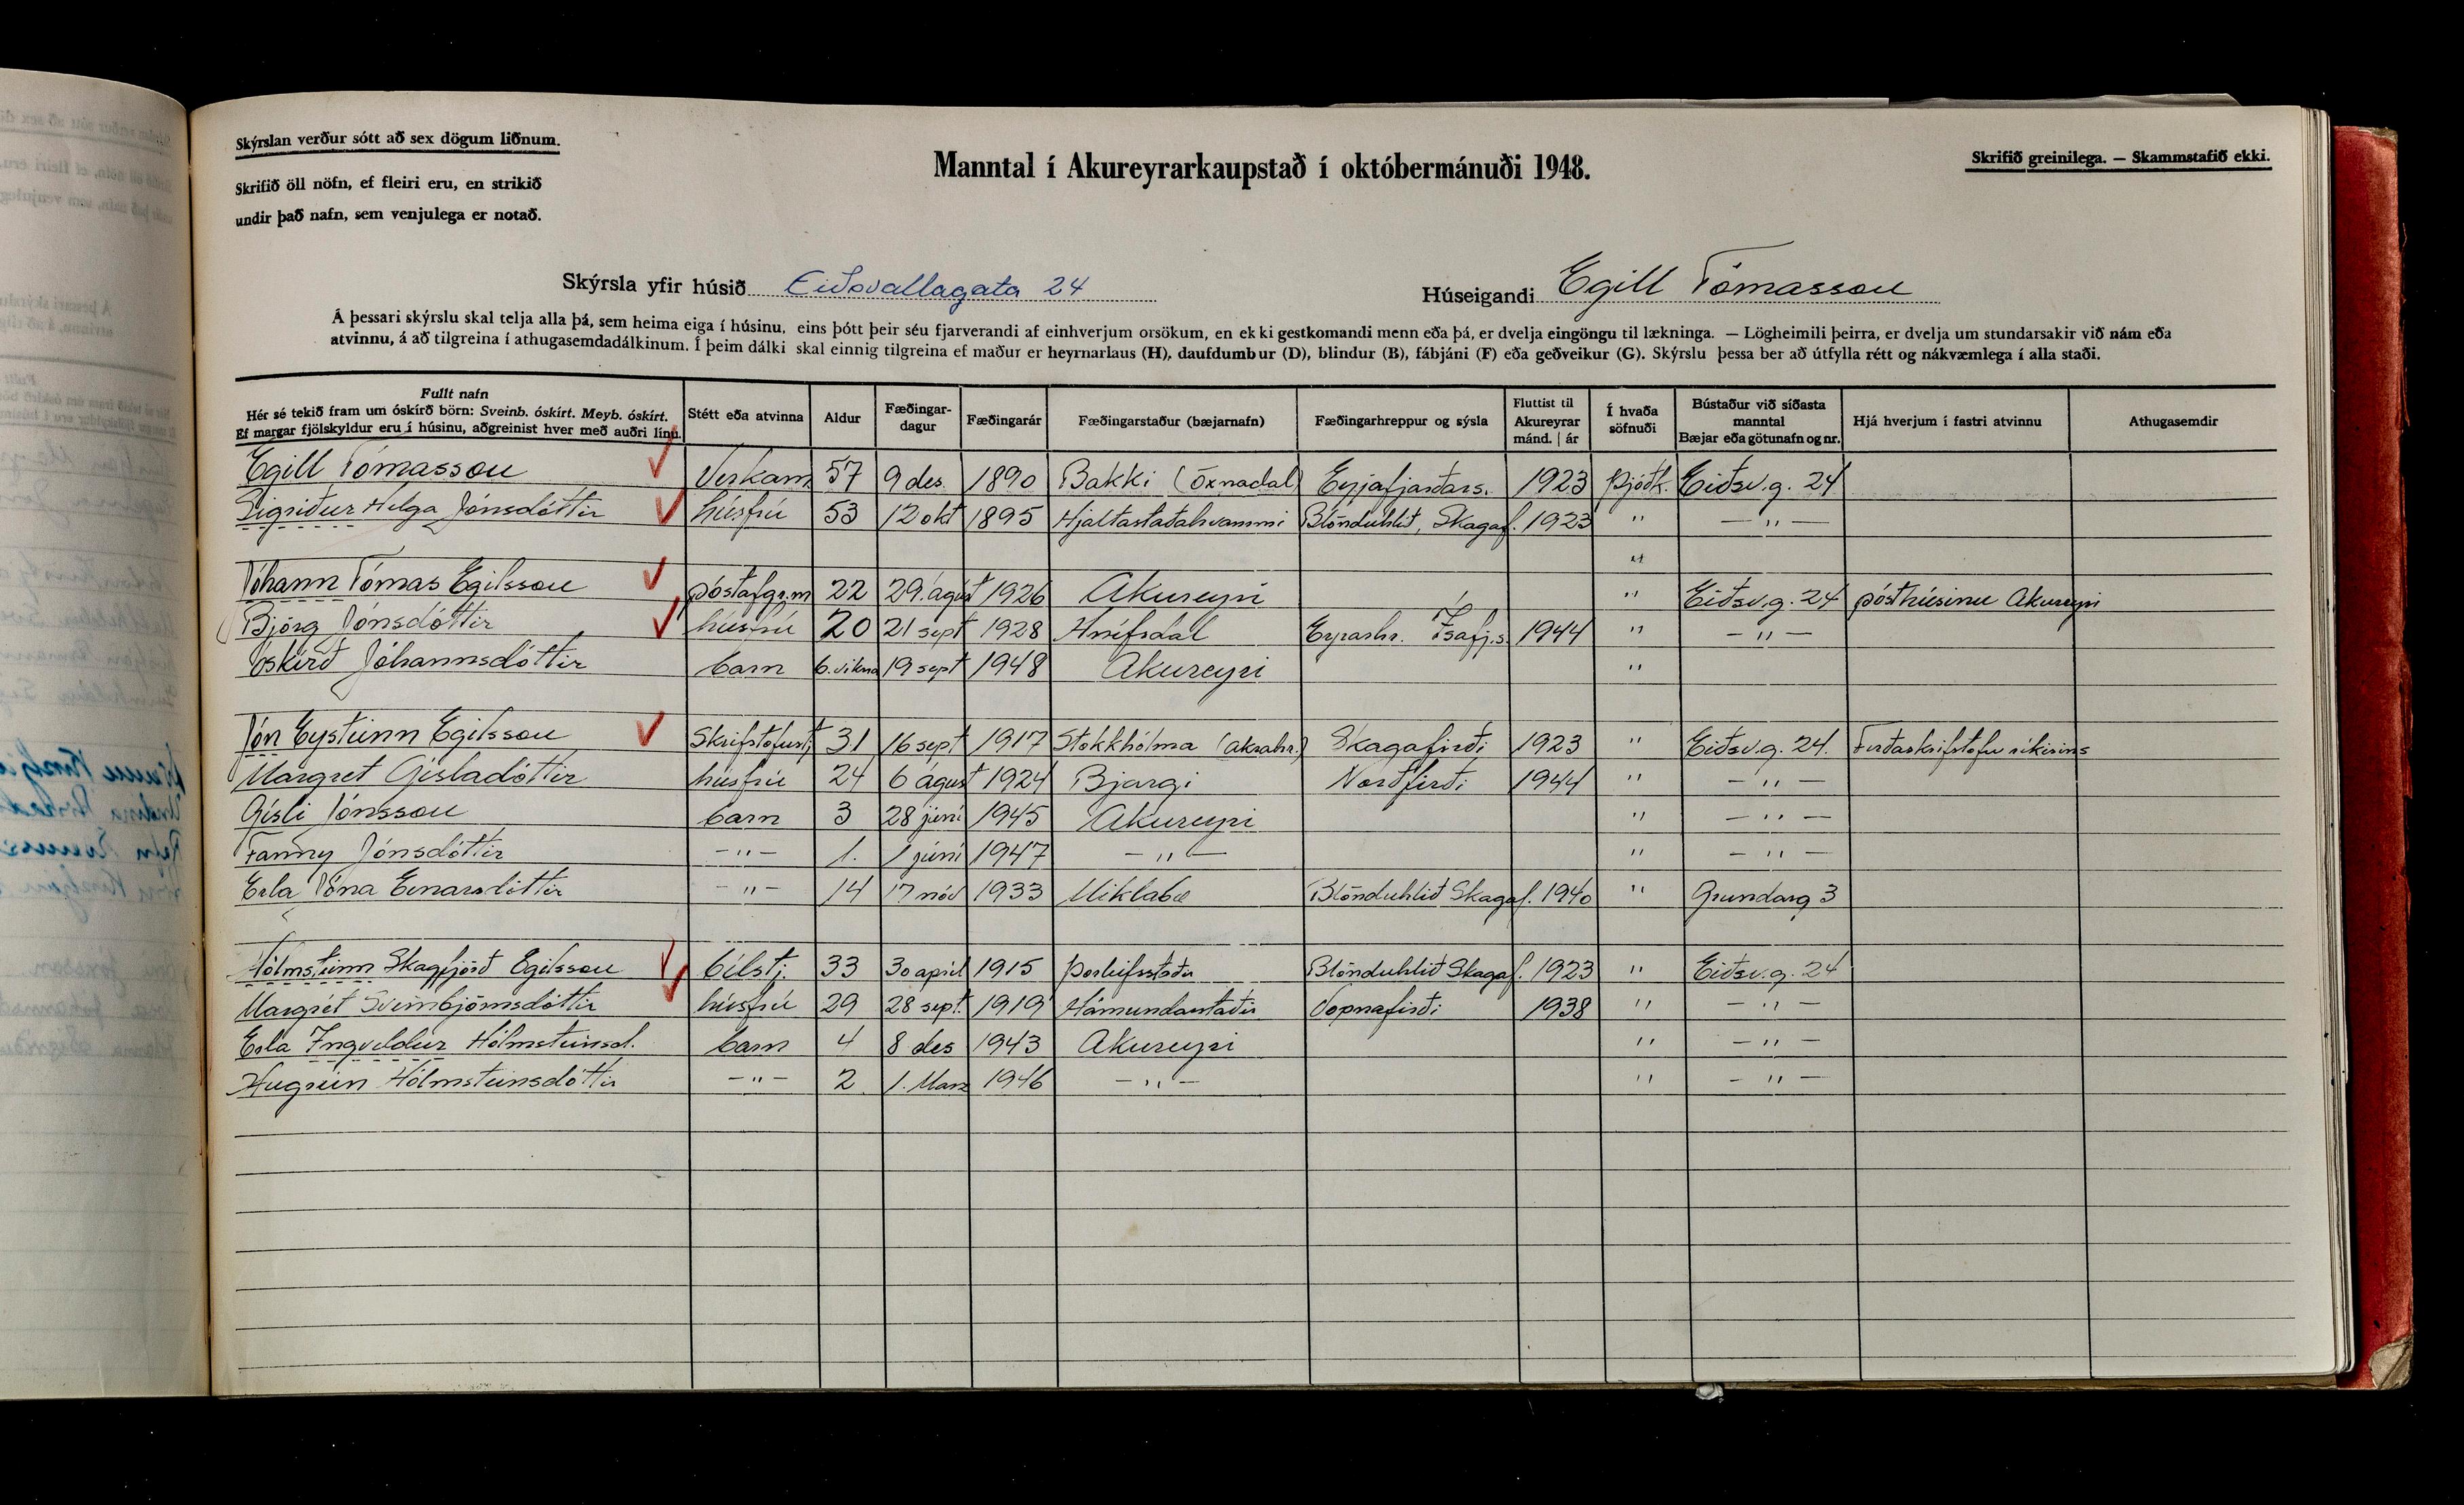 Skýrslan verður sótt að sex dögum liðnum.
Skrifið öll nöfn, ef fleiri eru, en strikið
undir það nafn, sem venjulega er notað.
Manntal í Akureyrarkaupstað í októbermánuði 1948.
Skrifið greinilega. — Skammstafið ekki.
Skýrsla yfir húsið Eiðsvallagata 24
Húseigandi Egill Tómasson
Á þessari skýrslu skal telja alla þá, sem heima eiga í húsinu, eins þótt þeir séu fjarverandi af einhverjum orsökum, en ekki gestkomandi menn eða þá, er dvelja eingöngu til lækninga. — Lögheimili þeirra, er dvelja um stundarsakir við nám eða
atvinnu, á að tilgreina í athugasemdadálkinum. Í þeim dálki skal einnig tilgreina ef maður er heyrnarlaus (H), daufdumbur (D), blindur (B), fábjáni (F) eða geðveikur (G). Skýrslu þessa ber að útfylla rétt og nákvæmlega í alla staði.
Fullt nafn
Hér sé tekið fram um óskírð börn: Sveinb. óskírt. Meyb. óskírt.
Ef margar fjölskyldur eru í húsinu, aðgreinist hver með auðri línu.
Stétt eða atvinna
Aldur
Fæðingar-
dagur
Fæðingarár
Fæðingarstaður (bæjarnafn)
Fæðingarhreppur og sýsla
Fluttist til
Akureyrar
mánd. | ár
Í hvaða
söfnuði
Bústaður við síðasta
manntal
Bæjar eða götunafn og nr.
Hjá hverjum í fastri atvinnu
Athugasemdir
Egill Tómasson Verkam. 57 9 des. 1890 Bakki (Öxnadal) Eyjafjarðars. 1923 Þjóðk. Eiðsv.g. 24
Sigríður Helga Jónsdóttir húsfrú 53 12 okt 1895 Hjaltastaðahvammi Blönduhlíð, Skagaf. 1923 " — " —
"
Jóhann Tómas Egilsson póstafgr.m 22 29. ágúst 1926 Akureyri " Eiðsv.g. 24 pósthúsinu Akureyri
Björg Jónsdóttir húsfrú 20 21 sept 1928 Hnífsdal Eyrarhr. Ísafj.s. 1944 " — " —
Óskírð Jóhannsdóttir barn 6. vikna 19 sept 1948 Akureyri "
Jón Eysteinn Egilsson Skrifstofustj 31 16 sept 1917 Stokkhólma (Akrahr.) Skagafirði 1923 " Eiðsv.g. 24. Ferðaskrifstofu ríkisins
Margret Gísladóttir húsfrú 24 6 ágúst 1924 Bjargi Norðfirði 1944 " — " —
Gísli Jónsson barn 3 28 júní 1945 Akureyri " — " —
Fanny Jónsdóttir — " — 1. 1 júní 1947 — " — " — " —
Erla Jóna Einarsdóttir — " — 14 17 nóv 1933 Miklabæ Blönduhlíð Skagaf. 1940 " Grundarg 3
Hólmsteinn Skagfjörð Egilsson bílstj. 33 30 apríl 1915 Þorleifsstaðir Blönduhlíð Skagaf. 1923 " Eiðsv.g. 24
Margrét Sveinbjörnsdóttir húsfrú 29 28 sept. 1919 Hámundarstaðir Vopnafirði 1938 " — " —
Erla Ingveldur Hólmsteinsd. barn 4 8 des 1943 Akureyri " — " —
Hugrún Hólmsteinsdóttir — " — 2 1. Marz 1946 — " — " — " —